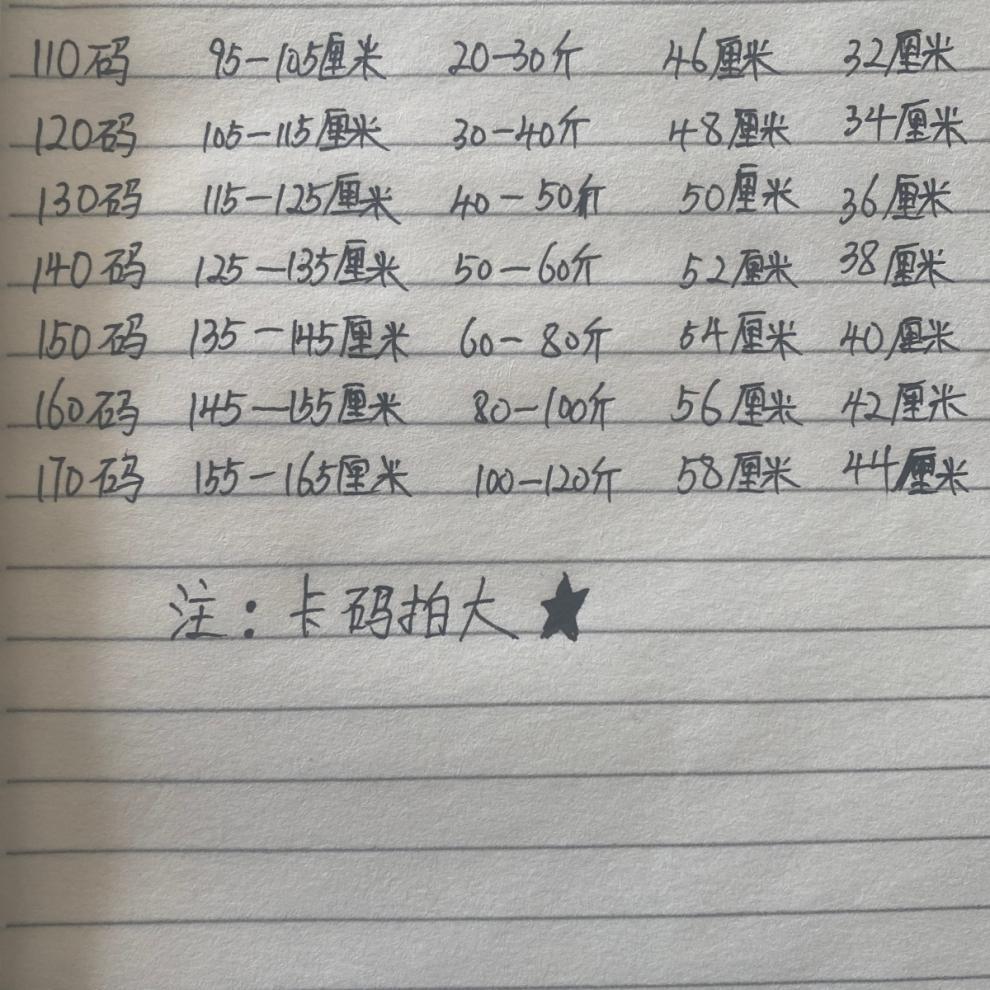 110码 95-105厘米 20-30斤 46厘米 32厘米
120码 105-115厘米 30-40斤 48厘米 34厘米
130码 115-125厘米 40-50斤 50厘米 36厘米
140码 125-135厘米 50-60斤 52厘米 38厘米
150码 135-145厘米 60-80斤 54厘米 40厘米
160码 145-155厘米 80-100斤 56厘米 42厘米
170码 155-165厘米 100-120斤 58厘米 44厘米
注:卡码拍大★